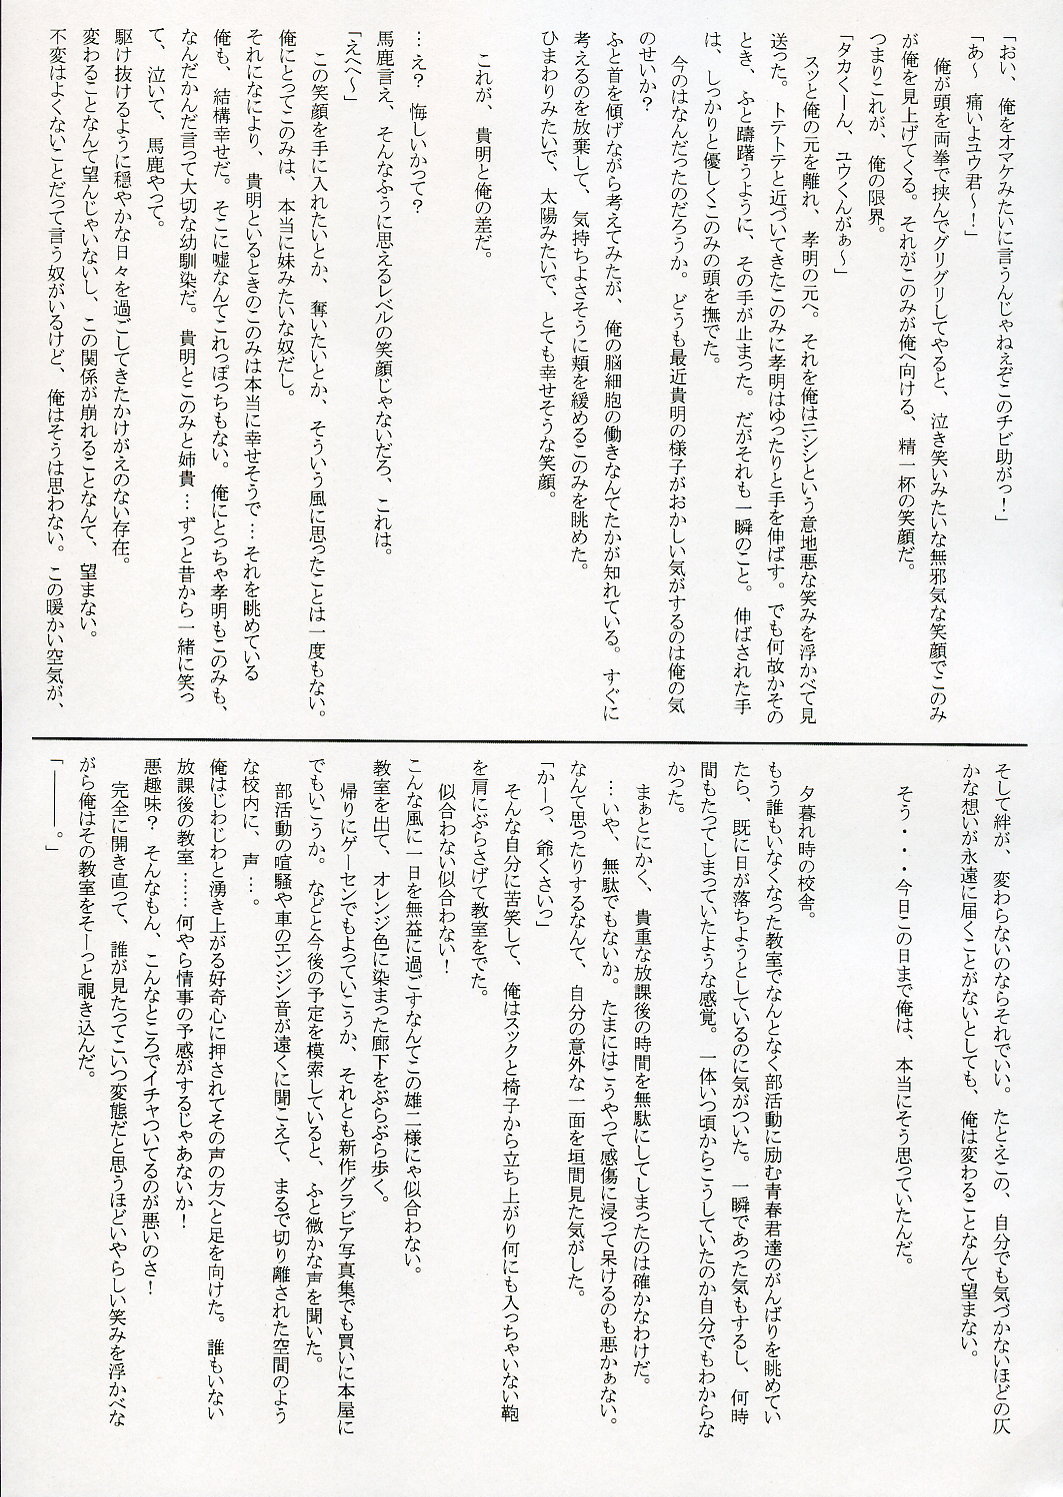 「おい、俺をオマケみたいに言うんじゃねぇぞこのチビ助がっ！」
「あ～　痛いよユウ君～！」
　俺が頭を両拳で挟んでグリグリしてやると、泣き笑いみたいな無邪気な笑顔でこのみ
が俺を見上げてくる。それがこのみが俺へ向ける、精一杯の笑顔だ。
つまりこれが、俺の限界。
「タカくーん、ユウくんがぁ～」
　スッと俺の元を離れ、孝明の元へ。それを俺はニシシという意地悪な笑みを浮かべて見
送った。トテトテと近づいてきたこのみに孝明はゆったりと手を伸ばす。でも何故かその
とき、ふと躊躇うように、その手が止まった。だがそれも一瞬のこと。伸ばされた手
は、しっかりと優しくこのみの頭を撫でた。
　今のはなんだったのだろうか。どうも最近貴明の様子がおかしい気がするのは俺の気
のせいか？
ふと首を傾げながら考えてみたが、俺の脳細胞の働きなんてたかが知れている。すぐに
考えるのを放棄して、気持ちよさそうに頬を緩めるこのみを眺めた。
ひまわりみたいで、太陽みたいで、とても幸せそうな笑顔。
　これが、貴明と俺の差だ。
…え？　悔しいかって？
馬鹿言え、そんなふうに思えるレベルの笑顔じゃないだろ、これは。
「えへへ～」
　この笑顔を手に入れたいとか、奪いたいとか、そういう風に思ったことは一度もない。
俺にとってこのみは、本当に妹みたいな奴だし。
それになにより、貴明といるときのこのみは本当に幸せそうで…それを眺めている
俺も、結構幸せだ。そこに嘘なんてこれっぽっちもない。俺にとっちゃ孝明もこのみも、
なんだかんだ言って大切な幼馴染だ。貴明とこのみと姉貴…ずっと昔から一緒に笑っ
て、泣いて、馬鹿やって。
駆け抜けるように穏やかな日々を過ごしてきたかけがえのない存在。
変わることなんて望んじゃいないし、この関係が崩れることなんて、望まない。
不変はよくないことだって言う奴がいるけど、俺はそうは思わない。この暖かい空気が、
そして絆が、変わらないのならそれでいい。たとえこの、自分でも気づかないほどの仄
かな想いが永遠に届くことがないとしても、俺は変わることなんて望まない。
　そう・・・今日この日まで俺は、本当にそう思っていたんだ。
　夕暮れ時の校舎。
もう誰もいなくなった教室でなんとなく部活動に励む青春君達のがんばりを眺めてい
たら、既に日が落ちようとしているのに気がついた。一瞬であった気もするし、何時
間もたってしまっていたような感覚。一体いつ頃からこうしていたのか自分でもわからな
かった。
　まぁとにかく、貴重な放課後の時間を無駄にしてしまったのは確かなわけだ。
　…いや、無駄でもないか。たまにはこうやって感傷に浸って呆けるのも悪かぁない。
なんて思ったりするなんて、自分の意外な一面を垣間見た気がした。
「かーっ、爺くさいっ」
　そんな自分に苦笑して、俺はスックと椅子から立ち上がり何にも入っちゃいない鞄
を肩にぶらさげて教室をでた。
　似合わない似合わない！
こんな風に一日を無益に過ごすなんてこの雄二様にゃ似合わない。
教室を出て、オレンジ色に染まった廊下をぶらぶら歩く。
　帰りにゲーセンでもよっていこうか、それとも新作グラビア写真集でも買いに本屋に
でもいこうか。などと今後の予定を模索していると、ふと微かな声を聞いた。
　部活動の喧騒や車のエンジン音が遠くに聞こえて、まるで切り離された空間のよう
な校内に、声…。
俺はじわじわと湧き上がる好奇心に押されてその声の方へと足を向けた。誰もいない
放課後の教室……何やら情事の予感がするじゃあないか！
悪趣味？　そんなもん、こんなところでイチャついてるのが悪いのさ！
　完全に開き直って、誰が見たってこいつ変態だと思うほどいやらしい笑みを浮かべな
がら俺はその教室をそーっと覗き込んだ。
「―――。」